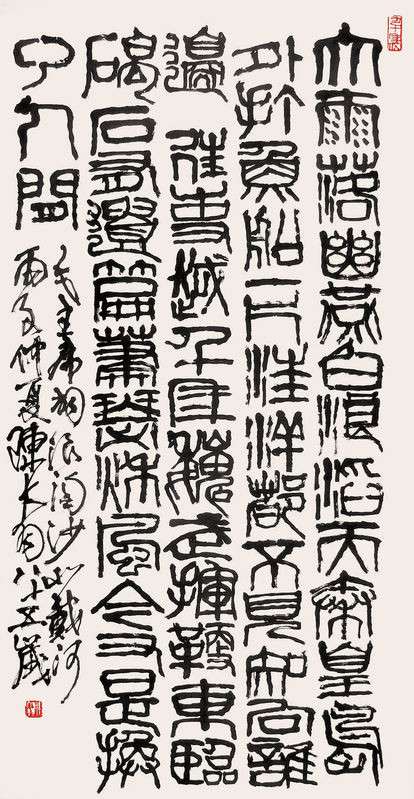 大雨落幽燕白浪滔天秦皇島
外打魚船一片汪洋都不見知向誰
邊 往事越千年魏武揮鞭東臨
碣石有遺篇蕭瑟秋風今又是換
了人間
毛主席詞浪淘沙北戴河
丙子仲夏陳大羽八五歲